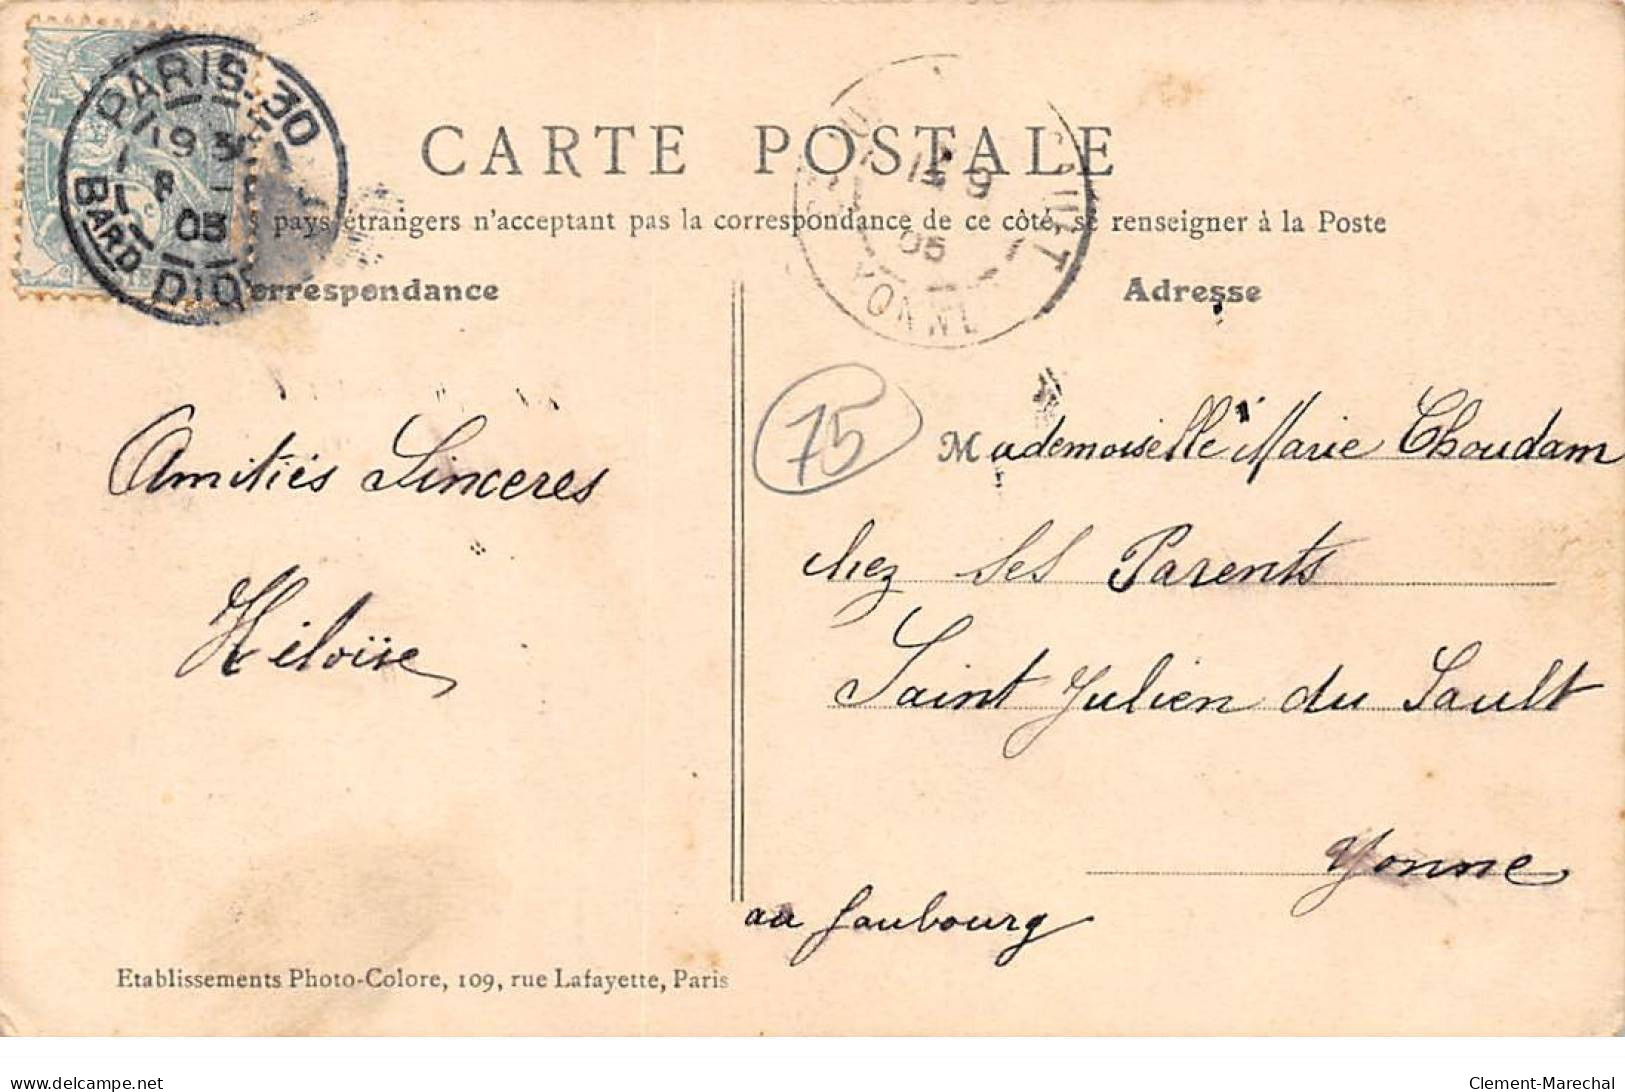 PARIS-30
BARD
05
CARTE POSTALE
pays étrangers n'acceptant pas la correspondance de ce côté, se renseigner à la Poste
orrespondance
Adresse
9
05
YONNE
75
Amitiés Sincères
Héloïse
Mademoiselle Marie Choudam
chez ses Parents
Saint Julien du Sault
Yonne
au faubourg
Etablissements Photo-Colore, 109, rue Lafayette, Paris
www.delcampe.net
Clement-Marechal